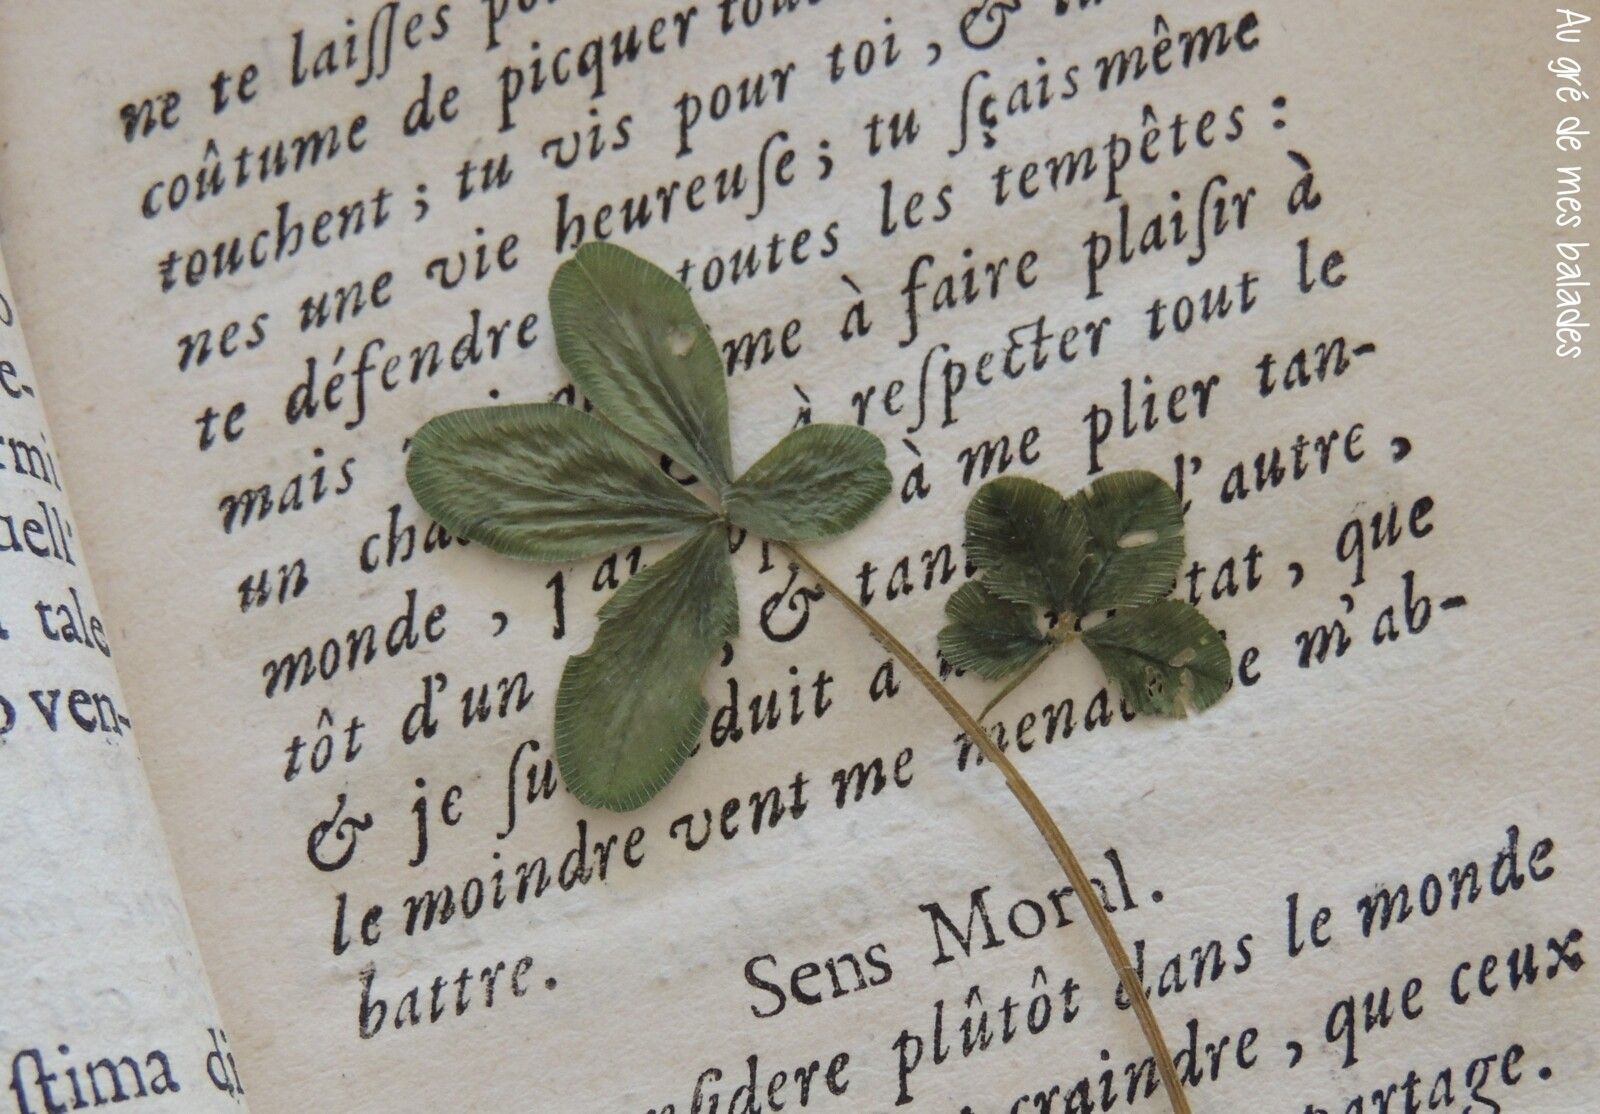 ne te laiſſes
coûtume de picquer
touchent ; tu vis pour toi , &
nes une vie heureuſe ; tu ſçais même
te défendre toutes les tempêtes :
mais me à faire plaiſir à
un à reſpecter tout le
monde , j'ai à me plier tan-
tôt d'un , & tant l'autre ,
& je ſu duit a tat , que
le moindre vent me menace de m'ab-
battre .
Sens Moral .
ſidere plûtôt dans le monde
craindre , que ceux
partage .
e-
rmi
uell'
tale
o ven-
ſtima di
Au gré de mes balades